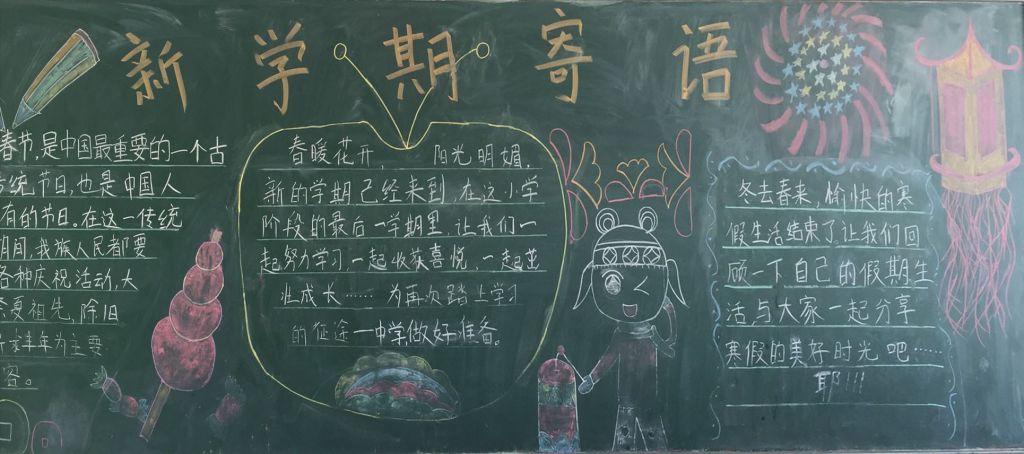 新学期寄语
春节,是中国最重要的一个古
传统节日,也是中国人
有的节日。在这一传统
期间,我族人民都要
各种庆祝活动,大
祭奠祖先,除旧
求丰年为主要
容。
春暖花开, 阳光明媚,
新的学期已经来到,在这小学
阶段的最后一学期里,让我们一
起努力学习,一起收获喜悦,一起茁
壮成长……为再次踏上学习
的征途一中学做好准备。
冬去春来,愉快的寒
假生活结束了让我们回
顾一下自己的假期生
活,与大家一起分享
寒假的美好时光吧……
耶!!!